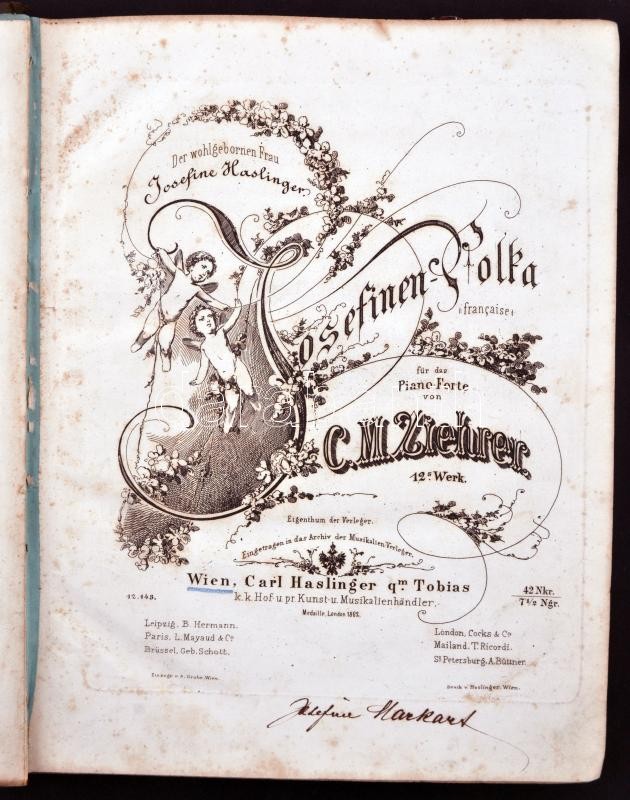 Der wohlgebornen Frau
Josefine Haslinger
Josefinen-Polka
française
für das
Piano-Forte
von
C. M. Ziehrer.
12s Werk.
Eigenthum der Verleger.
Eingetragen in das Archiv der Musikalien-Verleger.
Wien, Carl Haslinger qm Tobias
k.k. Hof u pr. Kunst- u. Musikalienhändler.
Medaille, London 1862.
12.143.
42 Nkr.
7½ Ngr.
Leipzig, B. Hermann.
Paris, L. Mayaud & Co
Brüssel, Geb. Schott.
London, Cocks & Co
Mailand, T. Ricordi.
St Petersburg, A. Büttner.
Druck v. Haslinger, Wien.
Josefine Markart